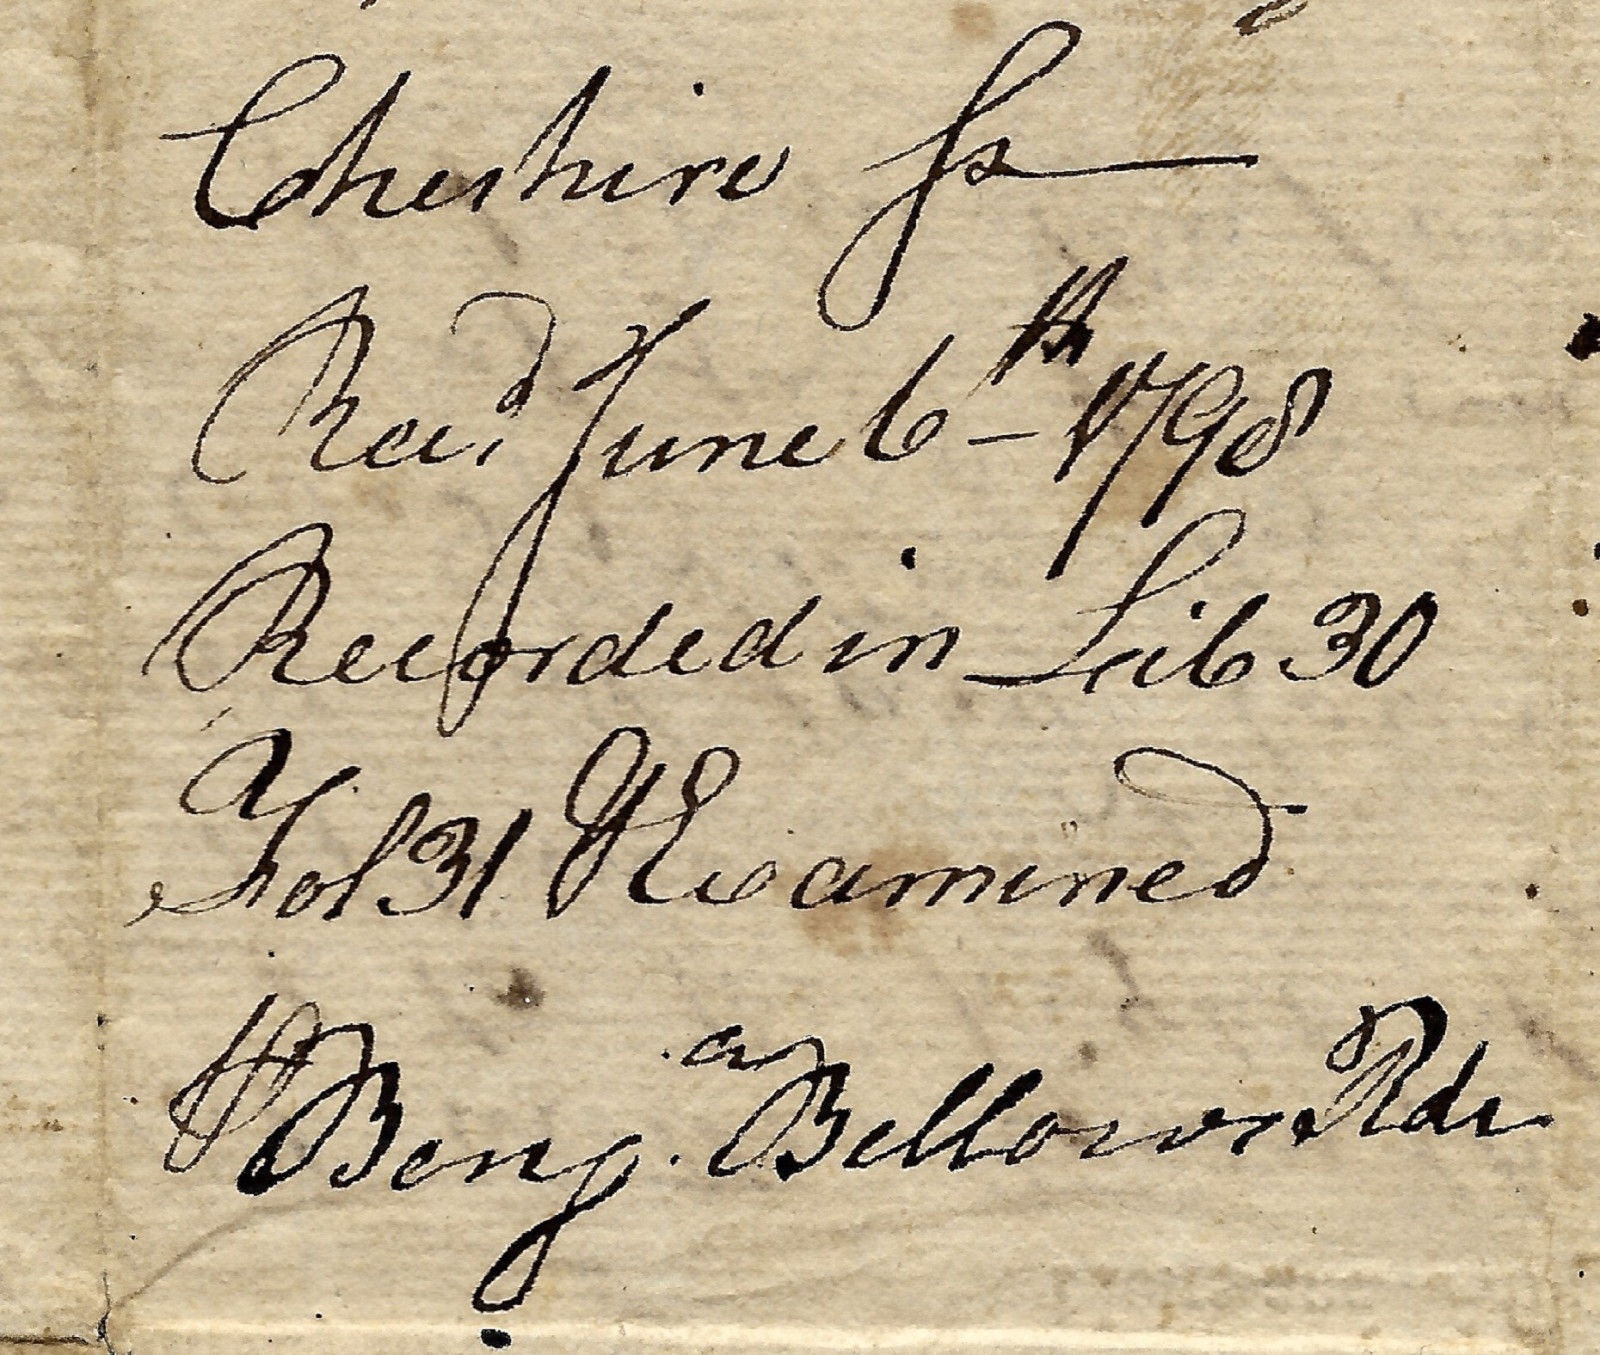 Cheshire Ss
Recd June 6th – 1798
Recorded in Lib 30
Fol 31 & Examined
Benja. Bellows Rdr